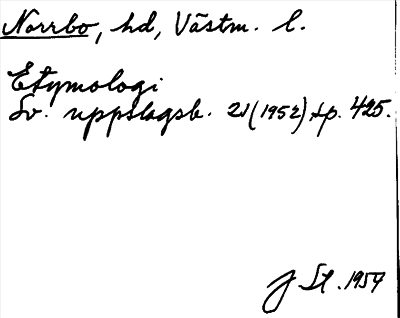 Norrbo, hd, Västm. l.
Etymologi
Sv. uppslagsb. 21(1952), sp. 425.
J St. 1957